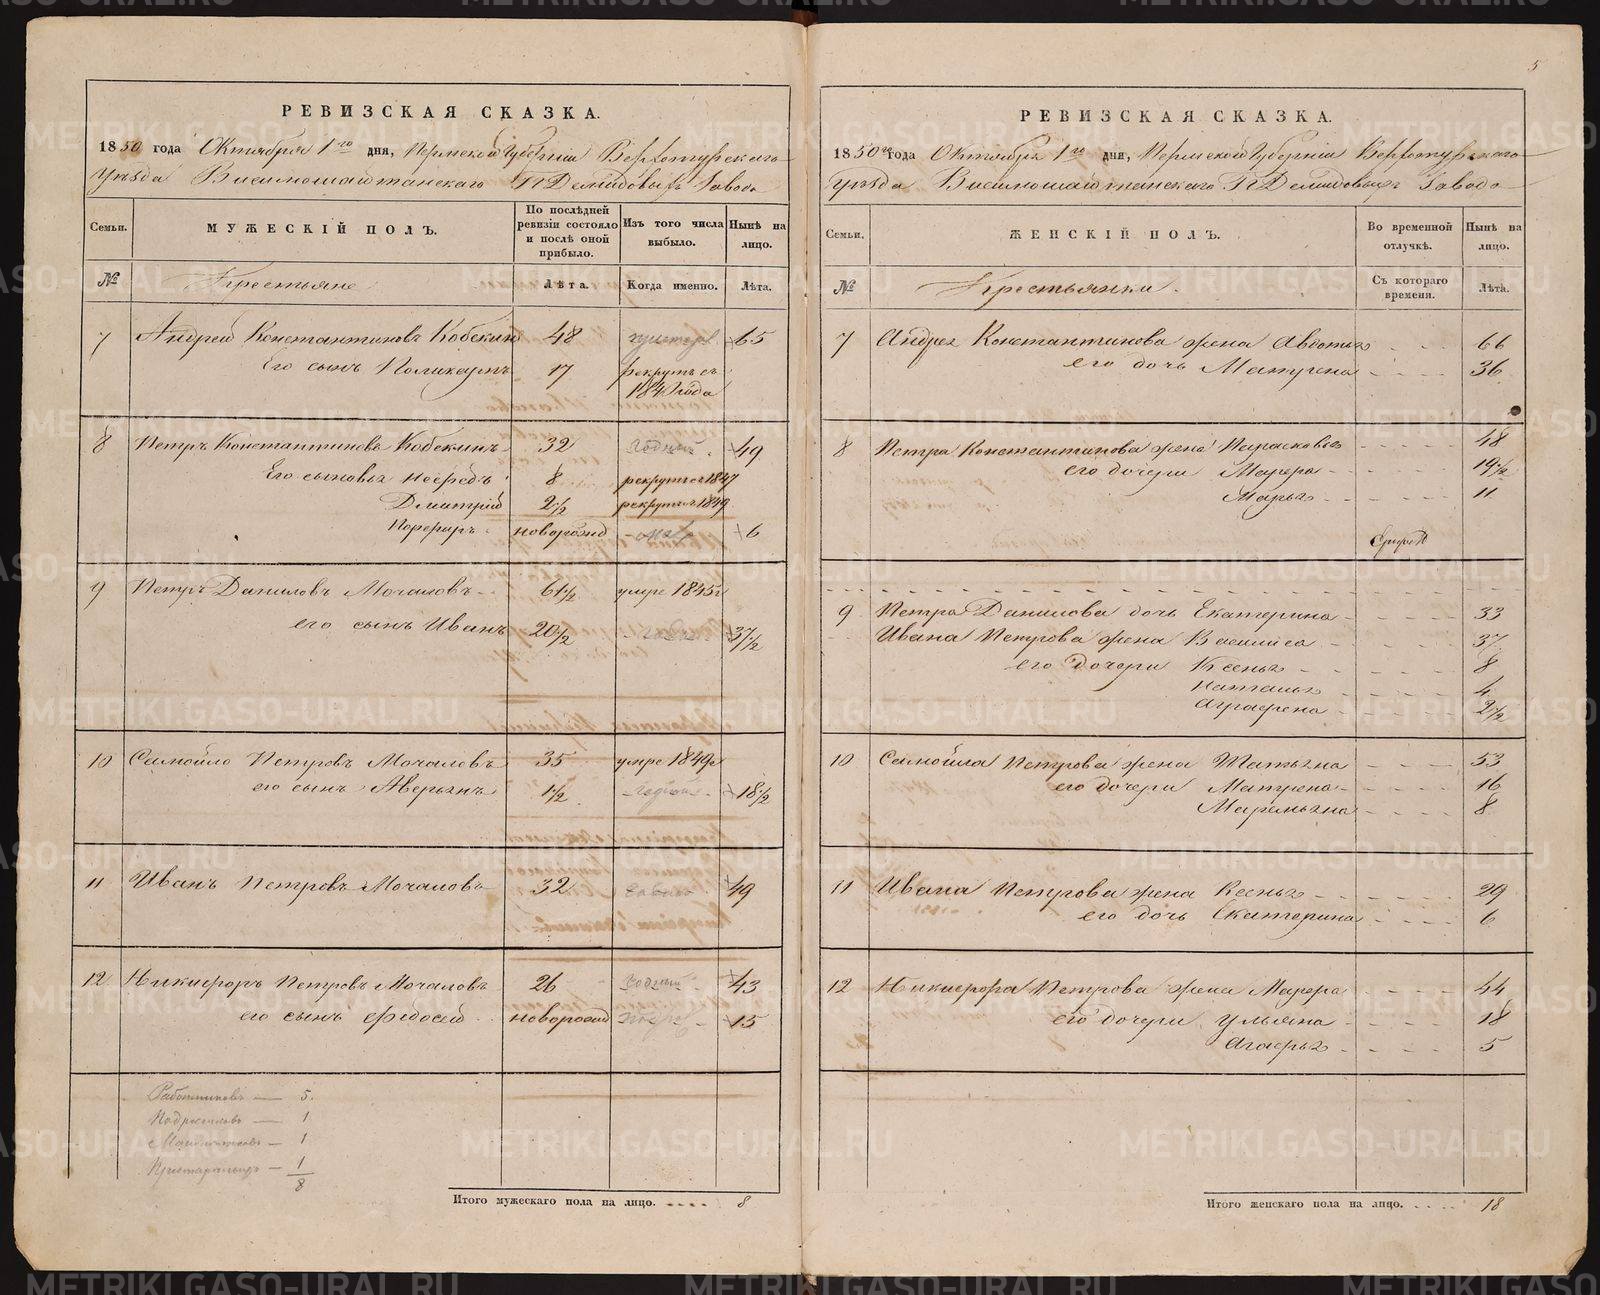 5
РЕВИЗСКАЯ СКАЗКА.
1850 года Октября 1го дня, Пермской Губерніи Верхотурскаго
Уѣзда Висимошайтанскаго ГГ Демидовыхъ Завода
Семьи. МУЖЕСКІЙ ПОЛЪ. По послѣдней ревизіи состояло и послѣ оной прибыло. Изъ того числа выбыло. Нынѣ на лицо.
№ Крестьяне Лѣта. Когда именно. Лѣта.
7 Андрей Константиновъ Кобекин 48 65
Его сынъ Поликарпъ 17 рекрутъ съ
184 года
8 Петръ Константиновъ Кобекинъ 32 годный 49
Его сыновья Нефедъ 8 рекрутъ съ 1847
Дмитрій 2 1/2 рекрутъ съ 1849
Порфиръ новорожд 6
9 Петръ Даниловъ Мочаловъ 61 1/2 умре 1845г
его сынъ Иванъ 20 1/2 37 1/2
10 Самойло Петровъ Мочаловъ 35 умре 1849г
его сынъ Аверьянъ 1 1/2 годной 18 1/2
11 Иванъ Петровъ Мочаловъ 32 49
12 Никифоръ Петровъ Мочаловъ 26 годный 43
его сынъ Федосей новорожд 15
Работниковъ — 5.
Подростковъ — 1
Малолѣтковъ — 1
Престарѣлыхъ — 1
8
Итого мужескаго пола на лицо. 8
РЕВИЗСКАЯ СКАЗКА.
1850го года Октября 1го дня, Пермской Губерніи Верхотурскаго
Уѣзда Висимошайтанскаго ГГ Демидовыхъ Завода
Семьи. ЖЕНСКІЙ ПОЛЪ. Во временной отлучкѣ. Нынѣ на лицо.
№ Крестьянки. Съ котораго времени. Лѣта.
7 Андрея Константинова жена Авдотья 66
его дочь Матрена 36
8 Петра Константинова жена Парасковья 48
его дочери Марфа 19 1/2
Марья 11
9 Петра Данилова дочь Екатерина 33
Ивана Петрова жена Василиса 37
его дочери Ксенья 8
Наталья 4
Аграфена 2 1/2
10 Самойла Петрова жена Татьяна 53
его дочери Матрена 16
Маремьяна 8
11 Ивана Петрова жена Ксенья 29
его дочь Екатерина 6
12 Никифора Петрова жена Марфа 44
его дочери Ульяна 18
Агафья 5
Итого женскаго пола на лицо. 18
METRIKI.GASO-URAL.RU